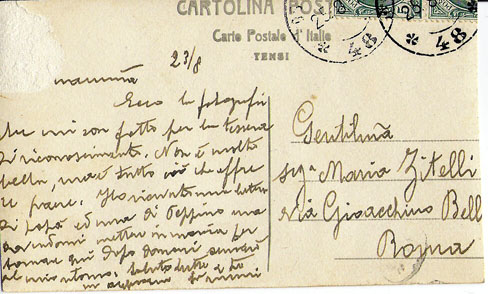 CARTOLINA POST
Carte Postale d'Italie
TENSI
48
48
23/8
mammà
Ecco la fotografia
che mi son fatto per la tessera
di riconoscimento. Non è molto
bella, ma è tutto ciò che offre
Ho ricevuto una lettera
di papà ed una di Peppino ma
dovendomi metter in marcia per
tornare qui dopo domani
al mio ritorno. Saluta tutte e te
un
Gentilmã
Sig.ª Maria Zitelli
Via Gioacchino Bell
Roma